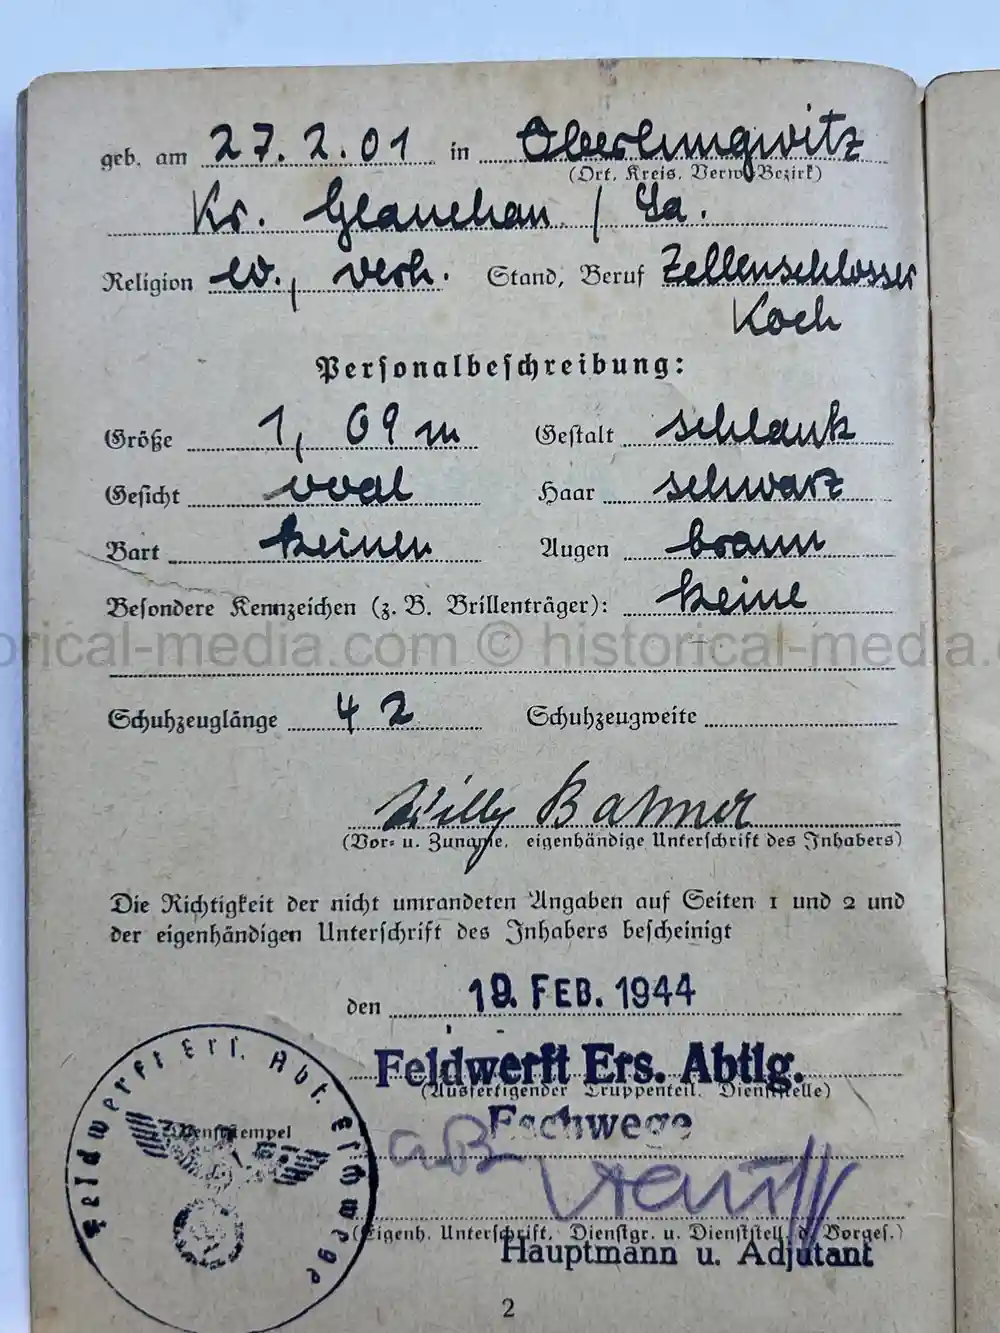 geb. am 27. 2. 01 in Oberlungwitz
(Ort, Kreis, Verw.-Bezirk)
Kr. Glauchau / Sa.
Religion ev., verh. Stand, Beruf Zellenschlosser
Koch
Personalbeschreibung:
Größe 1,69 m Gestalt schlank
Gesicht oval Haar schwarz
Bart keinen Augen braun
Besondere Kennzeichen (z. B. Brillenträger): keine
historical-media.com © historical-media.
Schuhzeuglänge 42 Schuhzeugweite
Willy Bahner
(Vor- u. Zuname, eigenhändige Unterschrift des Inhabers)
Die Richtigkeit der nicht umrandeten Angaben auf Seiten 1 und 2 und
der eigenhändigen Unterschrift des Inhabers bescheinigt
den 19. FEB. 1944
Feldwerft Ers. Abtlg.
(Ausfertigender Truppenteil, Dienststelle)
Eschwege
Feldwerft Ers. Abt. Eschwege
Dienststempel
(Eigenh. Unterschrift, Dienstgr. u. Dienststell. d. Vorges.)
Hauptmann u. Adjutant
2